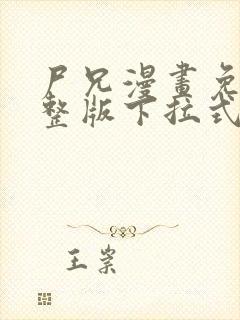 尸兄漫畫免
整版下拉式
王崇